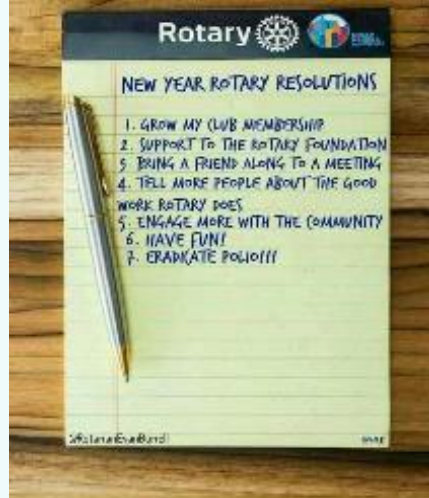 Rotary
NEW YEAR ROTARY RESOLUTIONS
1. GROW MY CLUB MEMBERSHIP
2. SUPPORT TO THE ROTARY FOUNDATION
3 BRING A FRIEND ALONG TO A MEETING
4. TELL MORE PEOPLE ABOUT THE GOOD
WORK ROTARY DOES
5. ENGAGE MORE WITH THE COMMUNITY
6. HAVE FUN!
7. ERADICATE POLIO!!!
@RotarianEvanBurrell